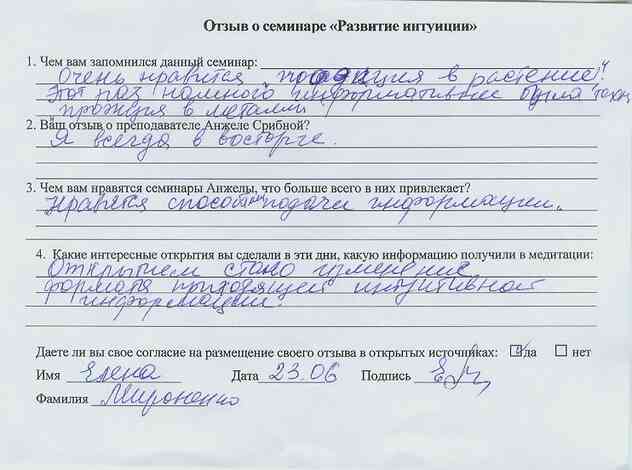 Отзыв о семинаре «Развитие интуиции»
1. Чем вам запомнился данный семинар:
Очень нравится „проекция в растение“.
Этот раз намного информативнее была
в металл
2. Ваш отзыв о преподавателе Анжеле Срибной?
Я всегда в восторге.
3. Чем вам нравятся семинары Анжелы, что больше всего в них привлекает?
Нравятся подачи информации.
4. Какие интересные открытия вы сделали в эти дни, какую информацию получили в медитации:
Открытием стало изменение
формата приходящей интуитивной
информации.
Даете ли вы свое согласие на размещение своего отзыва в открытых источниках: да нет
Имя Елена Дата 23.06 Подпись
Фамилия Мироненко